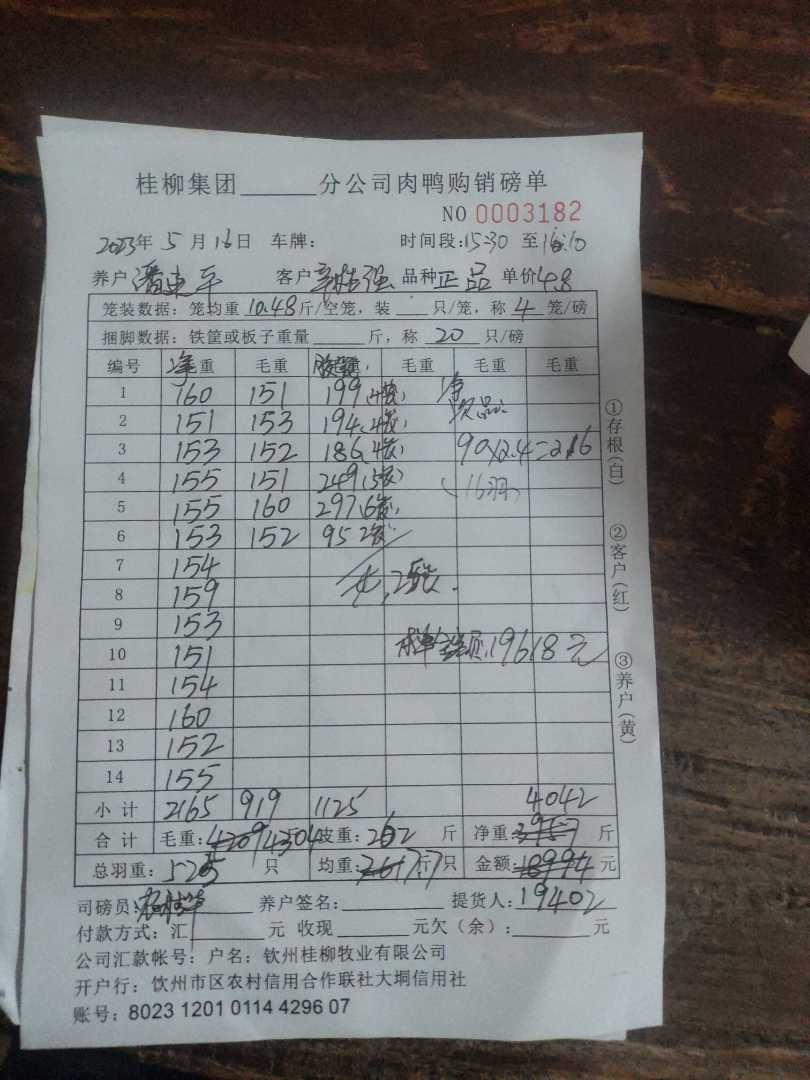 桂柳集团______分公司肉鸭购销磅单
NO 0003182
2023年 5 月 16日 车牌: 时间段:15:30 至 16:10
养户 客户 品种 正品 单价 4.8
笼装数据: 笼均重 10.48 斤/空笼, 装 ___ 只/笼, 称 4 笼/磅
捆脚数据: 铁筐或板子重量 ______ 斤, 称 20 只/磅
编号 净重 毛重 毛重 毛重 毛重
1 160 151 199(4袋) 净
2 151 153 194(4袋) 次品:
3 153 152 186(4袋) 90×2.4=216
4 155 151 249(5袋) (16羽)
5 155 160 297(6袋)
6 153 152 95 2袋
7 154
8 159
9 153
10 151 19618元
11 154
12 160
13 152
14 155
小计 2165 919 1125 4042
合计 毛重: 4209 4304 皮重: 262 斤 净重 斤
总羽重: 525 只 均重: 7.7 斤/只 金额: 18994 元
司磅员: 养户签名: 提货人: 19402
付款方式: 汇 元 收现 元欠(余): 元
公司汇款帐号: 户名: 钦州桂柳牧业有限公司
开户行: 钦州市区农村信用合作联社大垌信用社
账号: 8023 1201 0114 4296 07
①存根(白)
②客户(红)
③养户(黄)